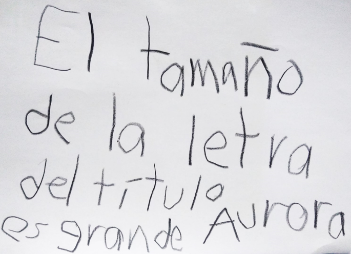 El tamaño
de la letra
del título
es grande Aurora